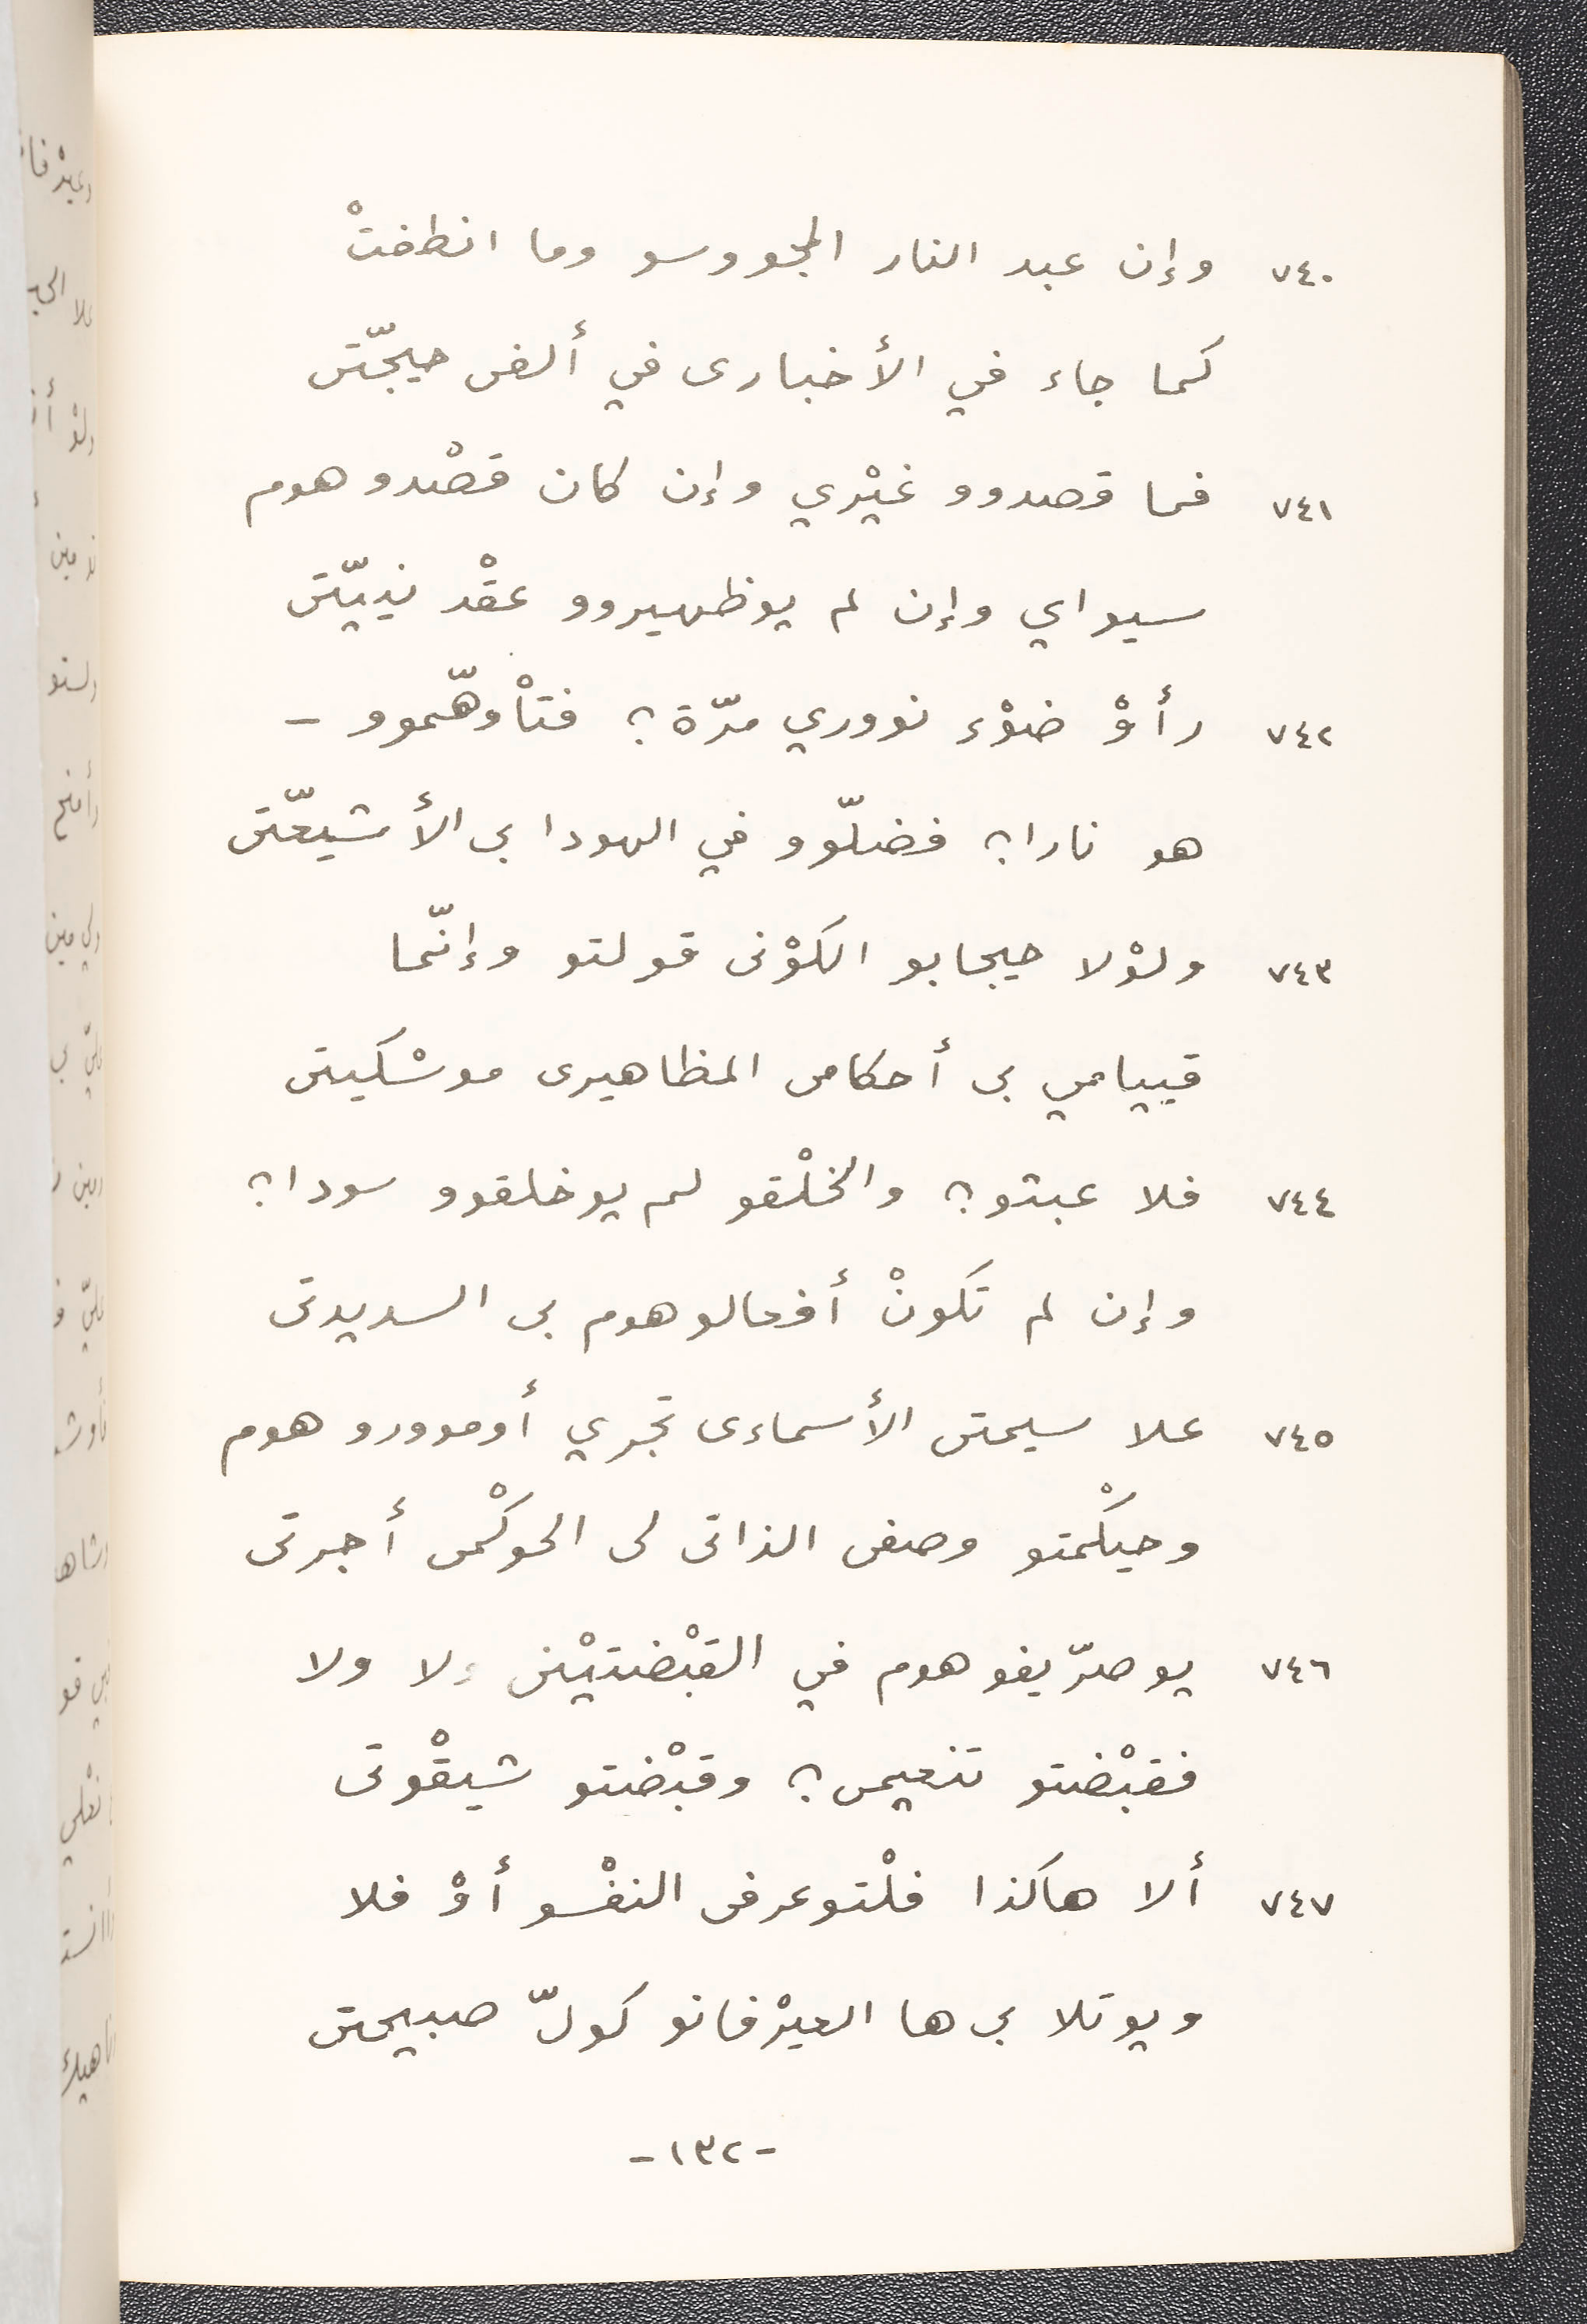 ٧٤٠ وإن عبد النار المجووسو وما انطفتْ
كما جاء في الأخبارى في ألفى حيجّتى
٧٤١ فما قصدوو غيْري وإن كان قصْدوهوم
سيواي وإن لم يوظهيروو عقْد نييّتى
٧٤٢ رأوْ ضوْء نووري مرّة؟ فتاْوهّموو –
هو نارا؟ فضلّوو في الهودا بى الأشيعّتى
٧٤٣ ولوْلا حيجابو الكوْنى قولتو وإنّما
قييامي بى أحكامى المظاهيرى موسْكيتى
٧٤٤ فلا عبثو؟ والخلْقو لم يوخلقوو سودا؟
وإن لم تكونْ أفعالوهوم بى السديدتى
٧٤٥ علا سيمتى الأسماءى تجري أوموورو هوم
وحيكْمتو وصفى الذاتى لى الحوكْمى أجرتى
٧٤٦ يوصرّيفوهوم في القبْضتيْنى ولا ولا
فقبْضتو تنعيمى؟ وقبْضتو شيقْوتى
٧٤٧ ألا هاكذا فلْتوعرفى النفْسو أوْ فلا
ويوتلا بى ها العيرْفانو كولّ صبيحتى
-١٣٢-